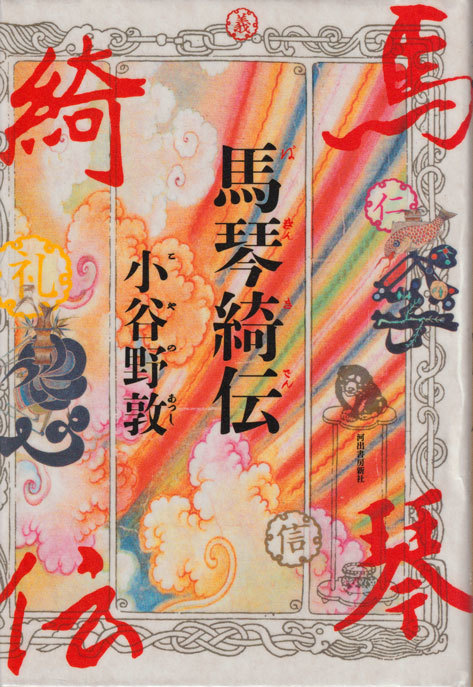 義
馬琴
綺伝
仁
馬琴綺伝
ばきんきでん
小谷野敦
こやのあつし
礼
信
河出書房新社